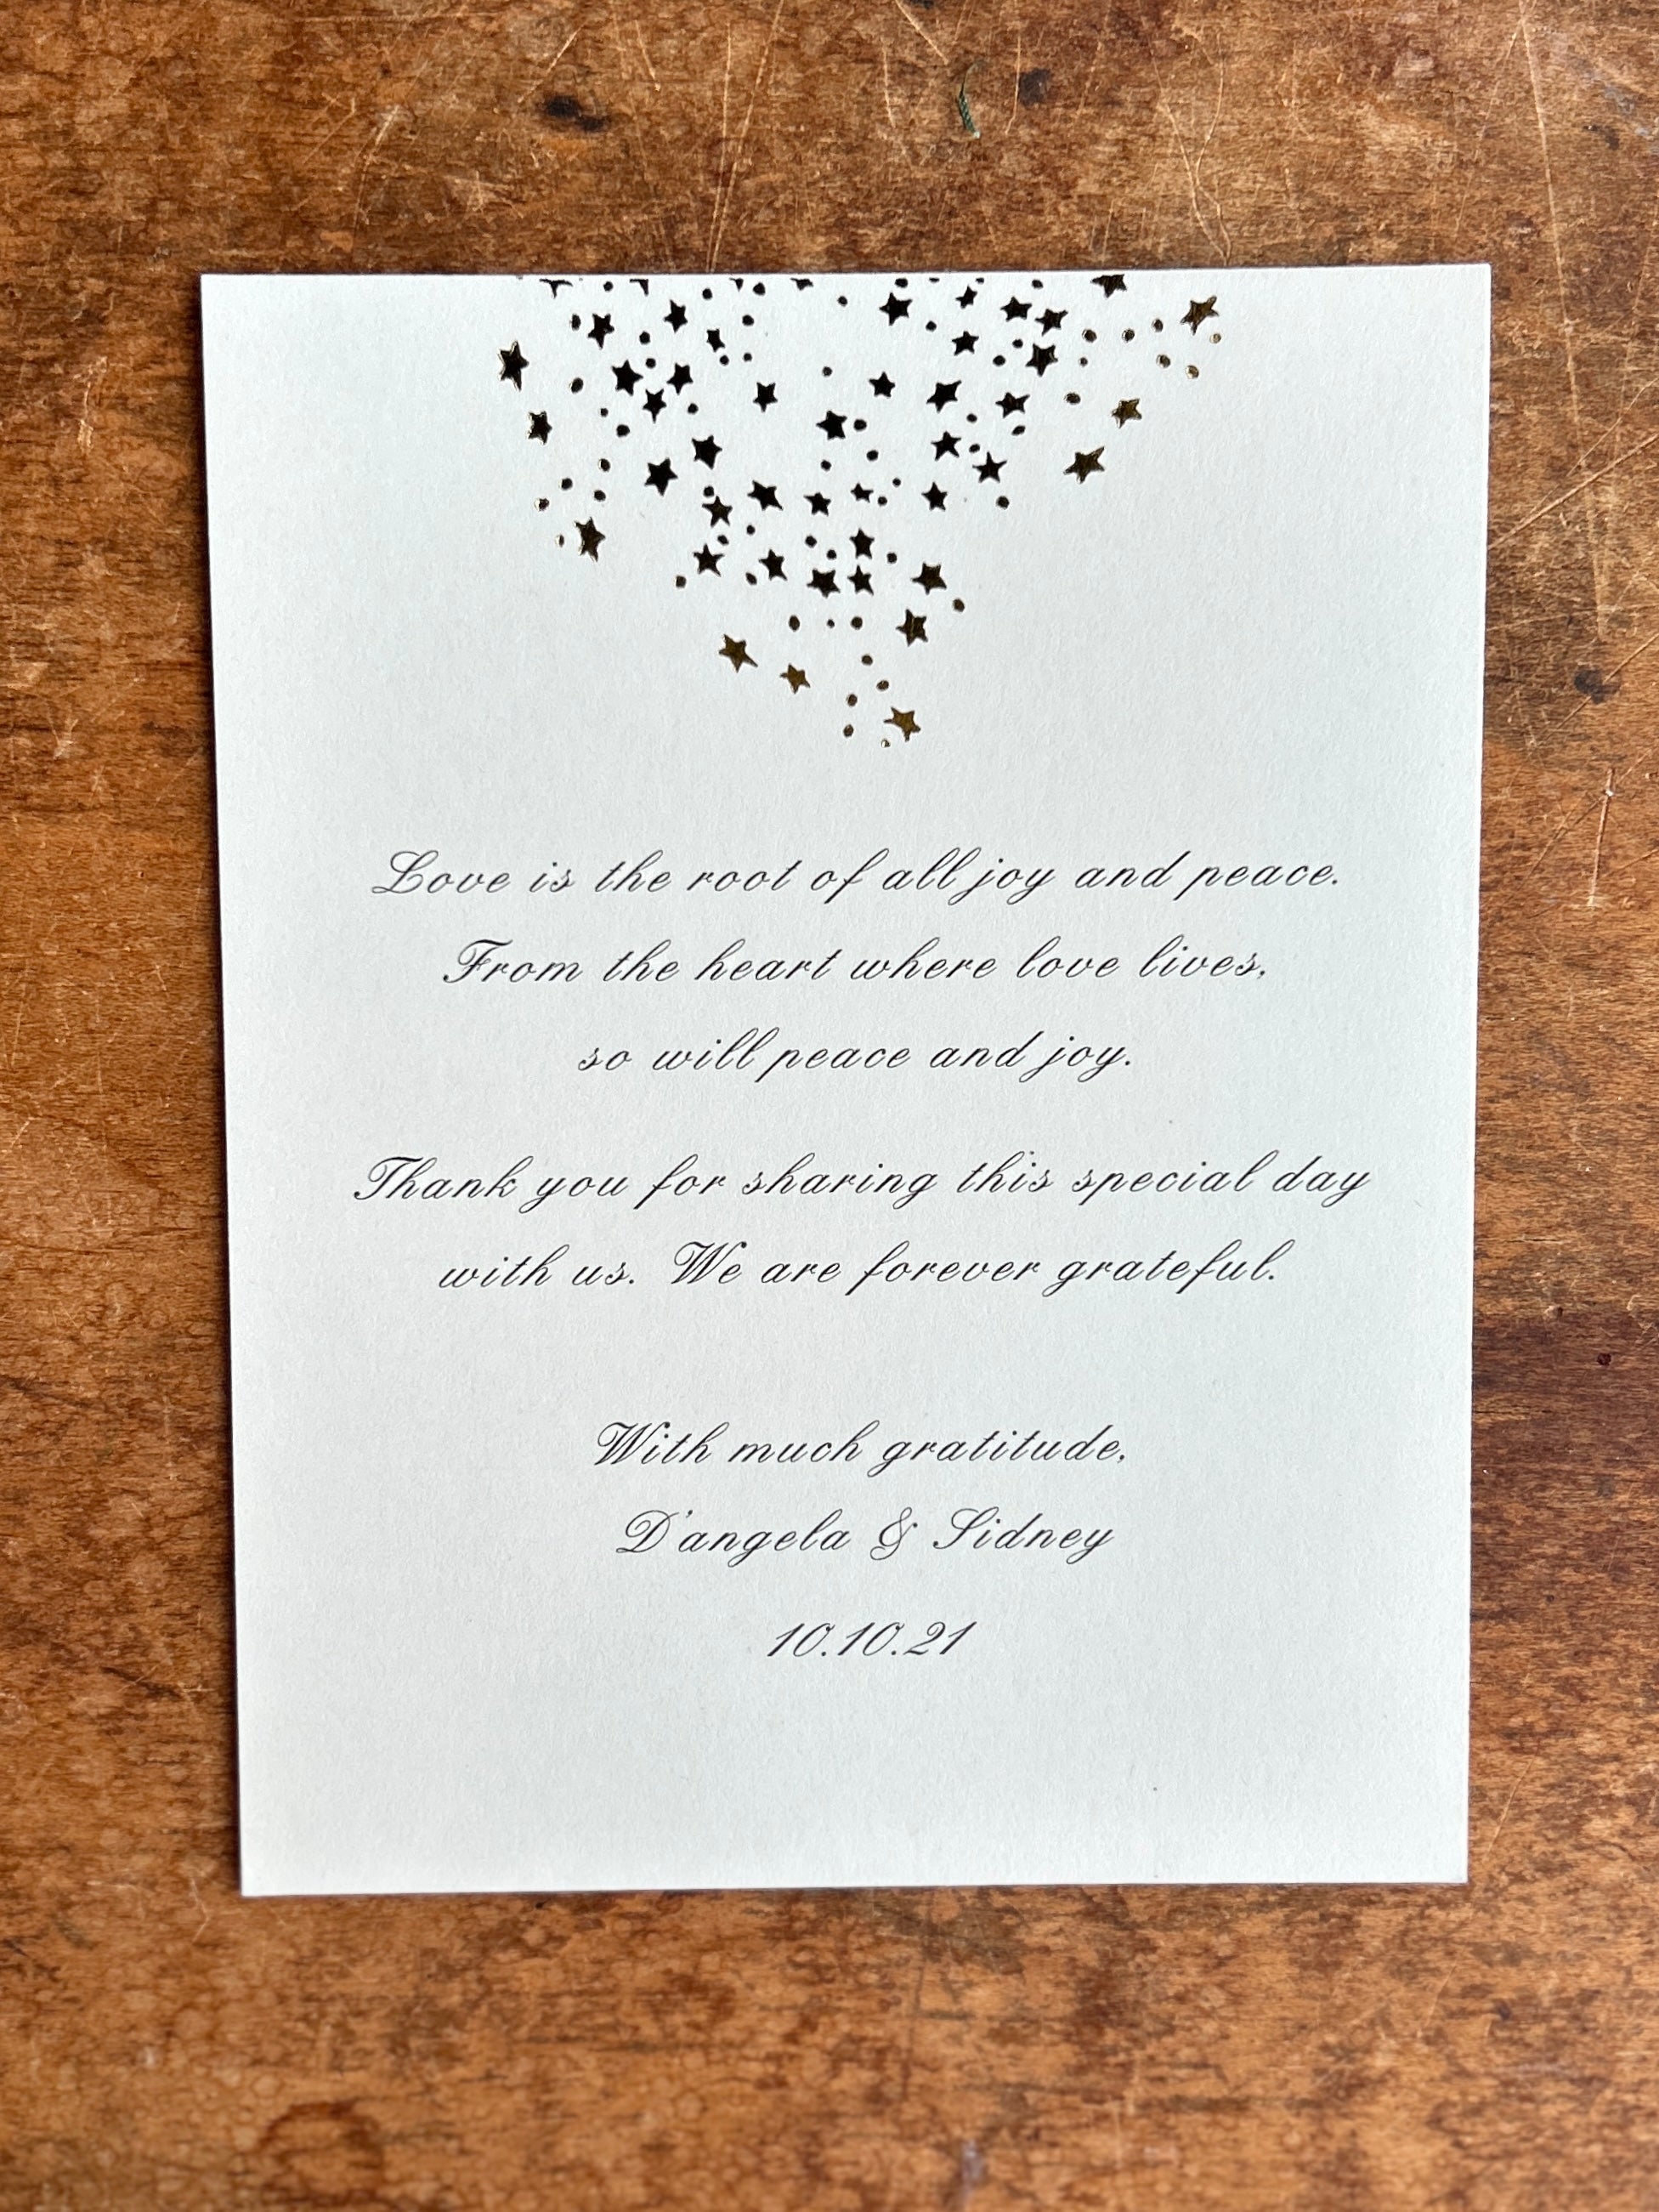 Love is the root of all joy and peace.
From the heart where love lives,
so will peace and joy.
Thank you for sharing this special day
with us. We are forever grateful.
With much gratitude,
D'angela & Sidney
10.10.21